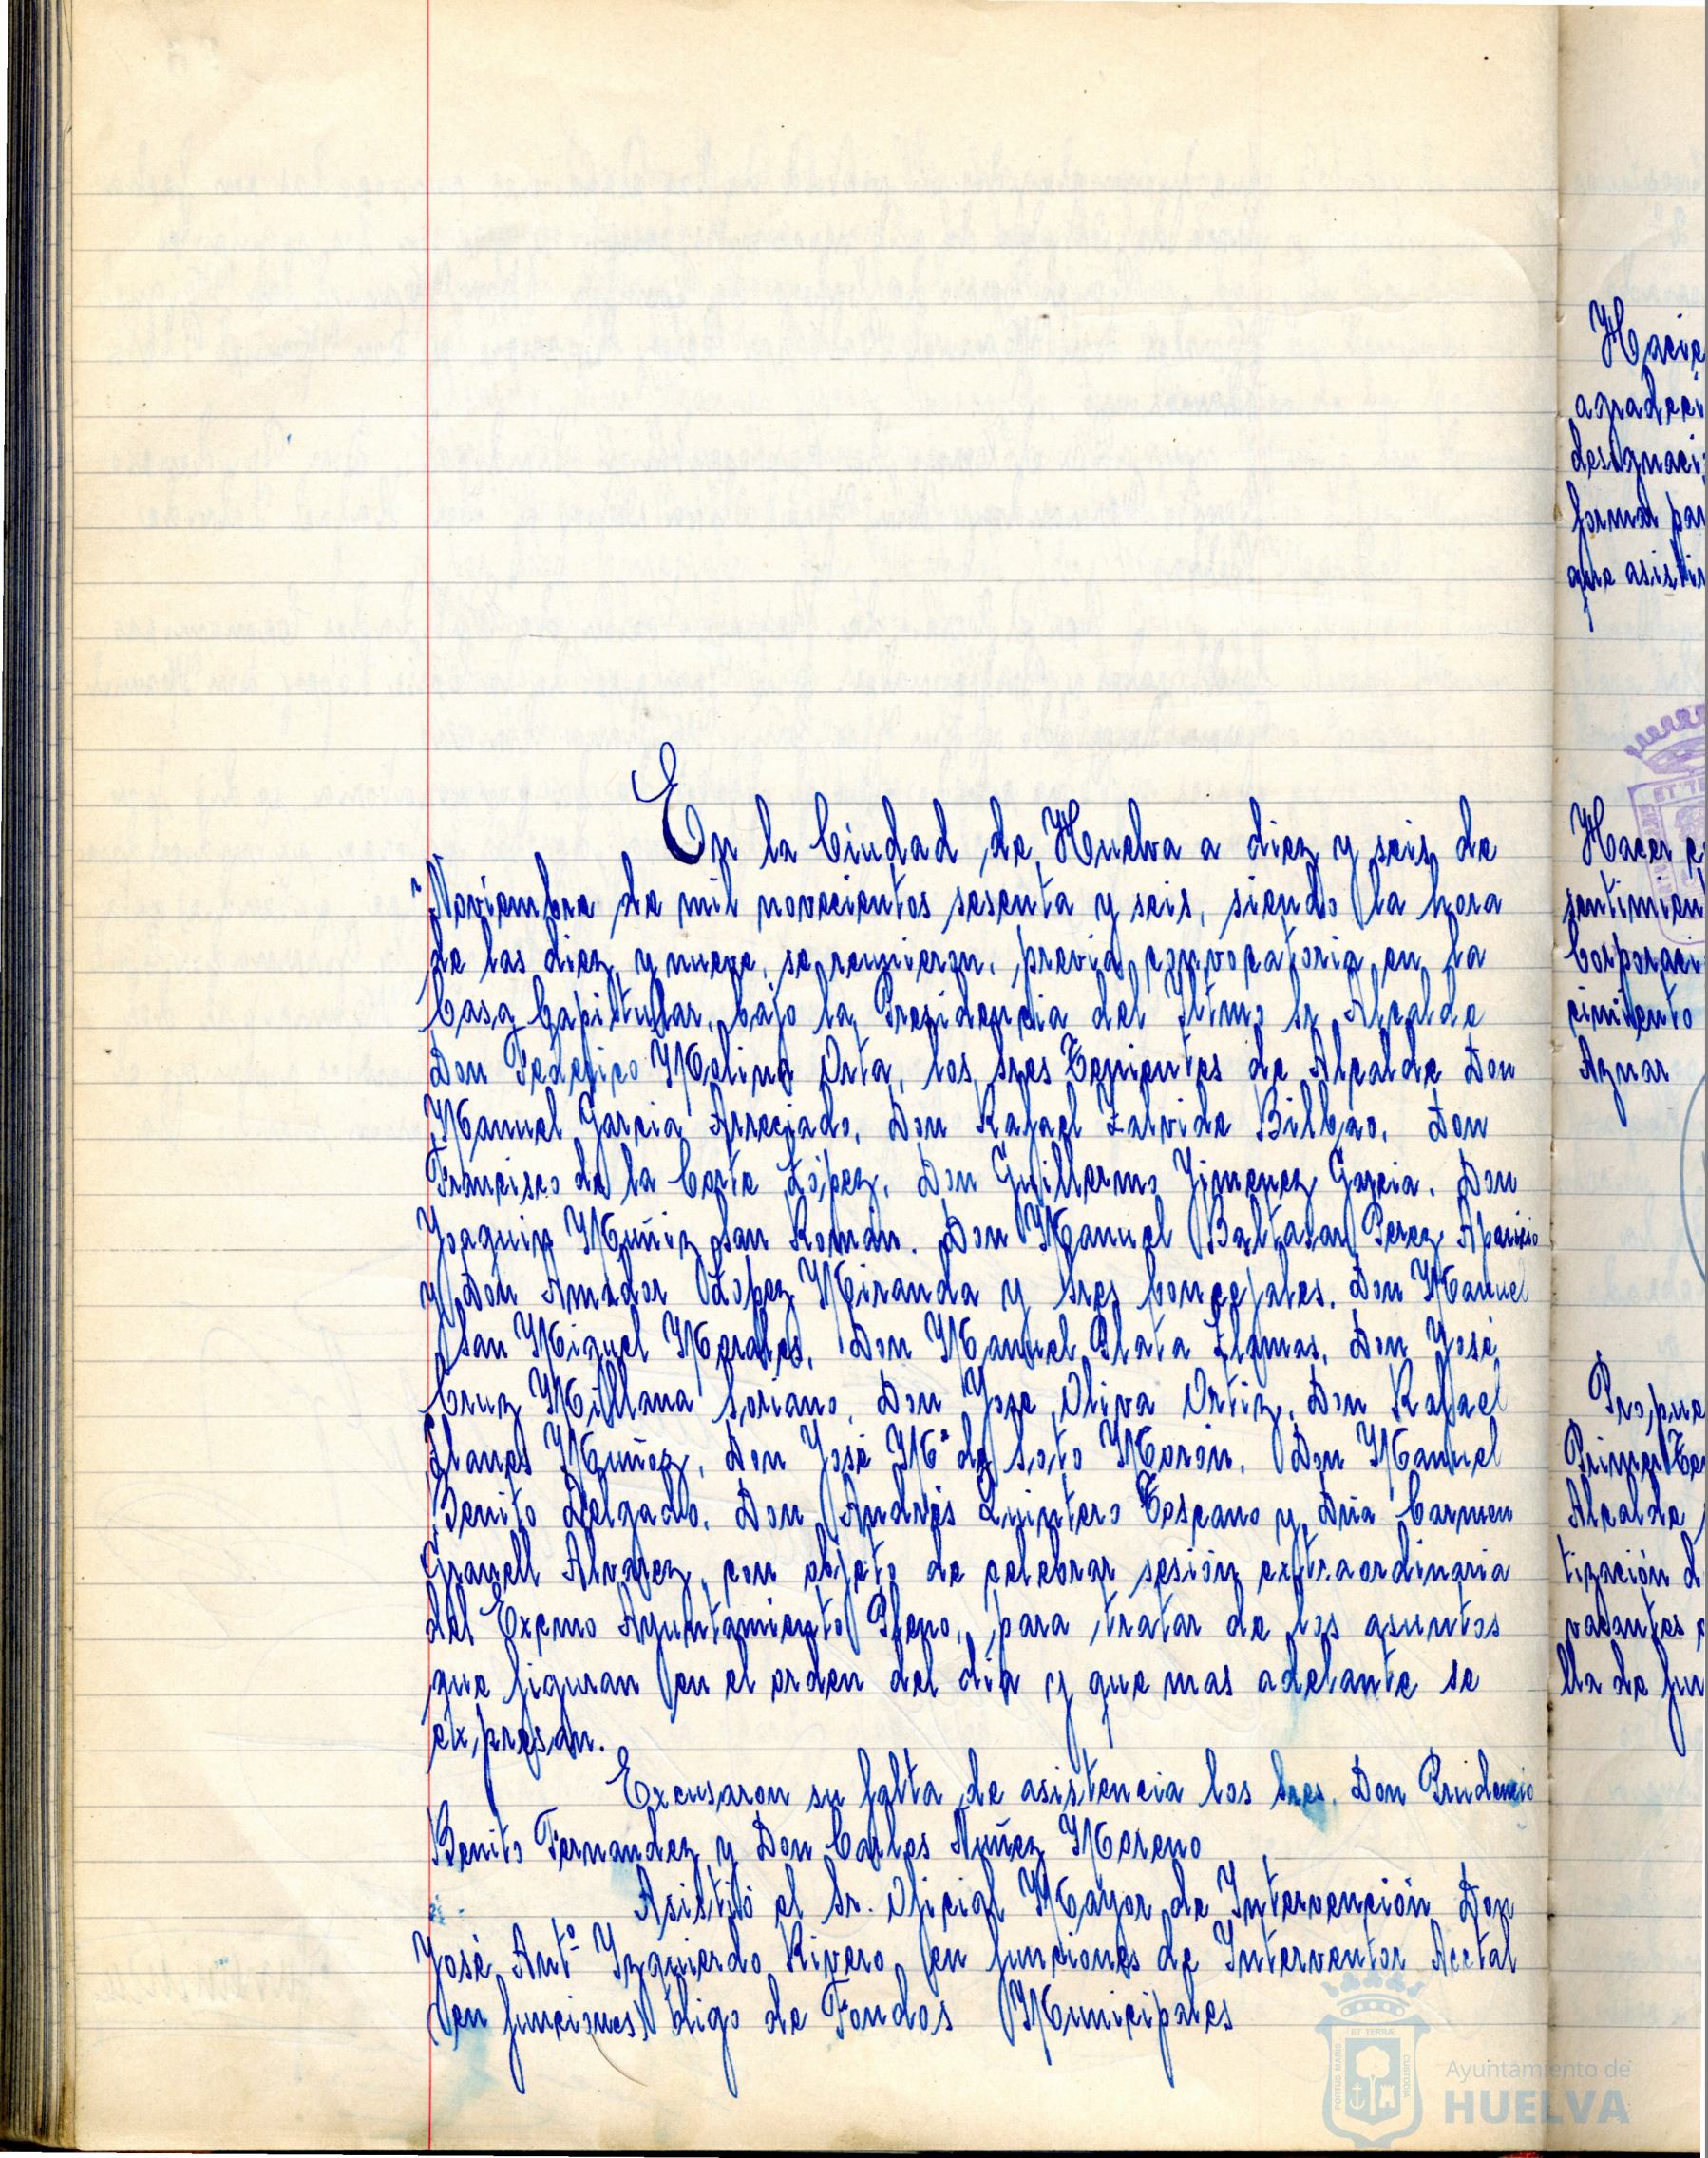 En la Ciudad de Huelva a diez y seis de
Noviembre de mil novecientos sesenta y seis, siendo la hora
de las diez y nueve, se reunieron, previa convocatoria en la
Casa Capitular, bajo la Presidencia del Iltmo Sr Alcalde
Don Federico Molina Orta, los Sres Tenientes de Alcalde Don
Manuel Garcia Arreciado, Don Rafael Zalvide Bilbao, Don
Francisco de la Corte López, Don Guillermo Jimenez Garcia, Don
Joaquin Muñiz San Román. Don Manuel Baltasar Perez Aparicio
y Don Amador López Miranda y Sres Concejales, Don Manuel
San Miguel Morales, Don Manuel Plata Llamas, Don José
Cruz Millana Soriano, Don Jose Oliva Ortiz, Don Rafael
Llanes Muñoz, Don José Mª de Soto Morón, Don Manuel
Benito Delgado, Don Andrés Quintero Toscano y Dña Carmen
Granell Alvarez, con objeto de celebrar sesión extraordinaria
del Excmo Ayuntamiento Pleno, para tratar de los asuntos
que figuran en el orden del día y que mas adelante se
expresan.
Excusaron su falta de asistencia los Sres. Don Prudencio
Benito Fernandez y Don Carlos Nuñez Moreno
Asistió el Sr. Oficial Mayor de Intervención Don
José Antº Izquierdo Rivero (en funciones de Interventor Acctal
(en funciones) digo de Fondos Municipales
Ayuntamiento de
HUELVA
Hacer
agradeci
designaci
formar par
que asistir
Hacer
sentimien
Corporaci
cimiento
Aznar
Propue
Primer Te
Alcalde
tización d
vacantes
lla de fun